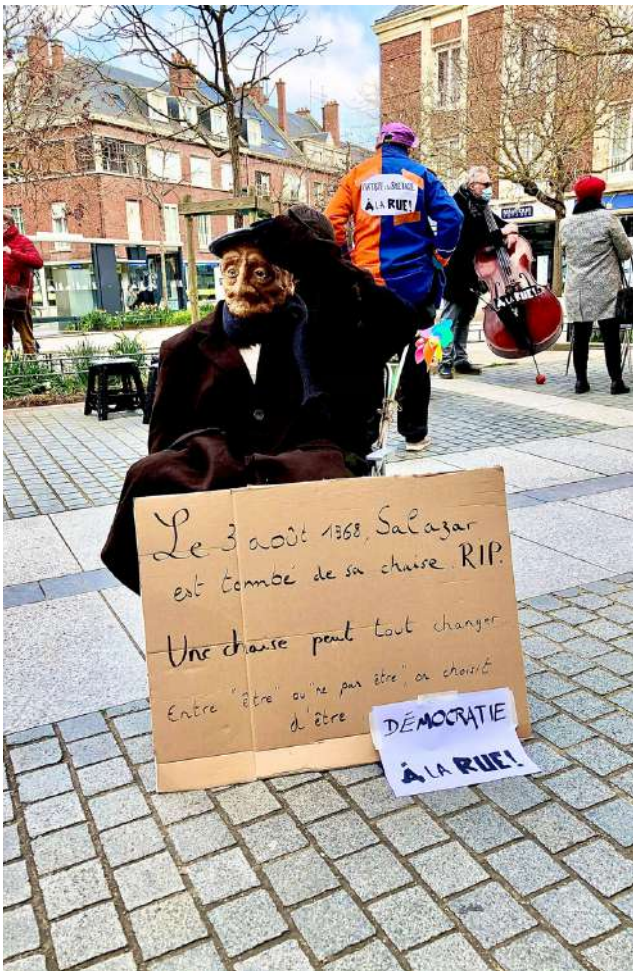 À LA RUE!
À LA RUE!
Le 3 août 1968, Salazar
est tombé de sa chaise. RIP.
Une chaise peut tout changer
Entre "être" ou "ne pas être", on choisit
d'être
DÉMOCRATIE
À LA RUE!